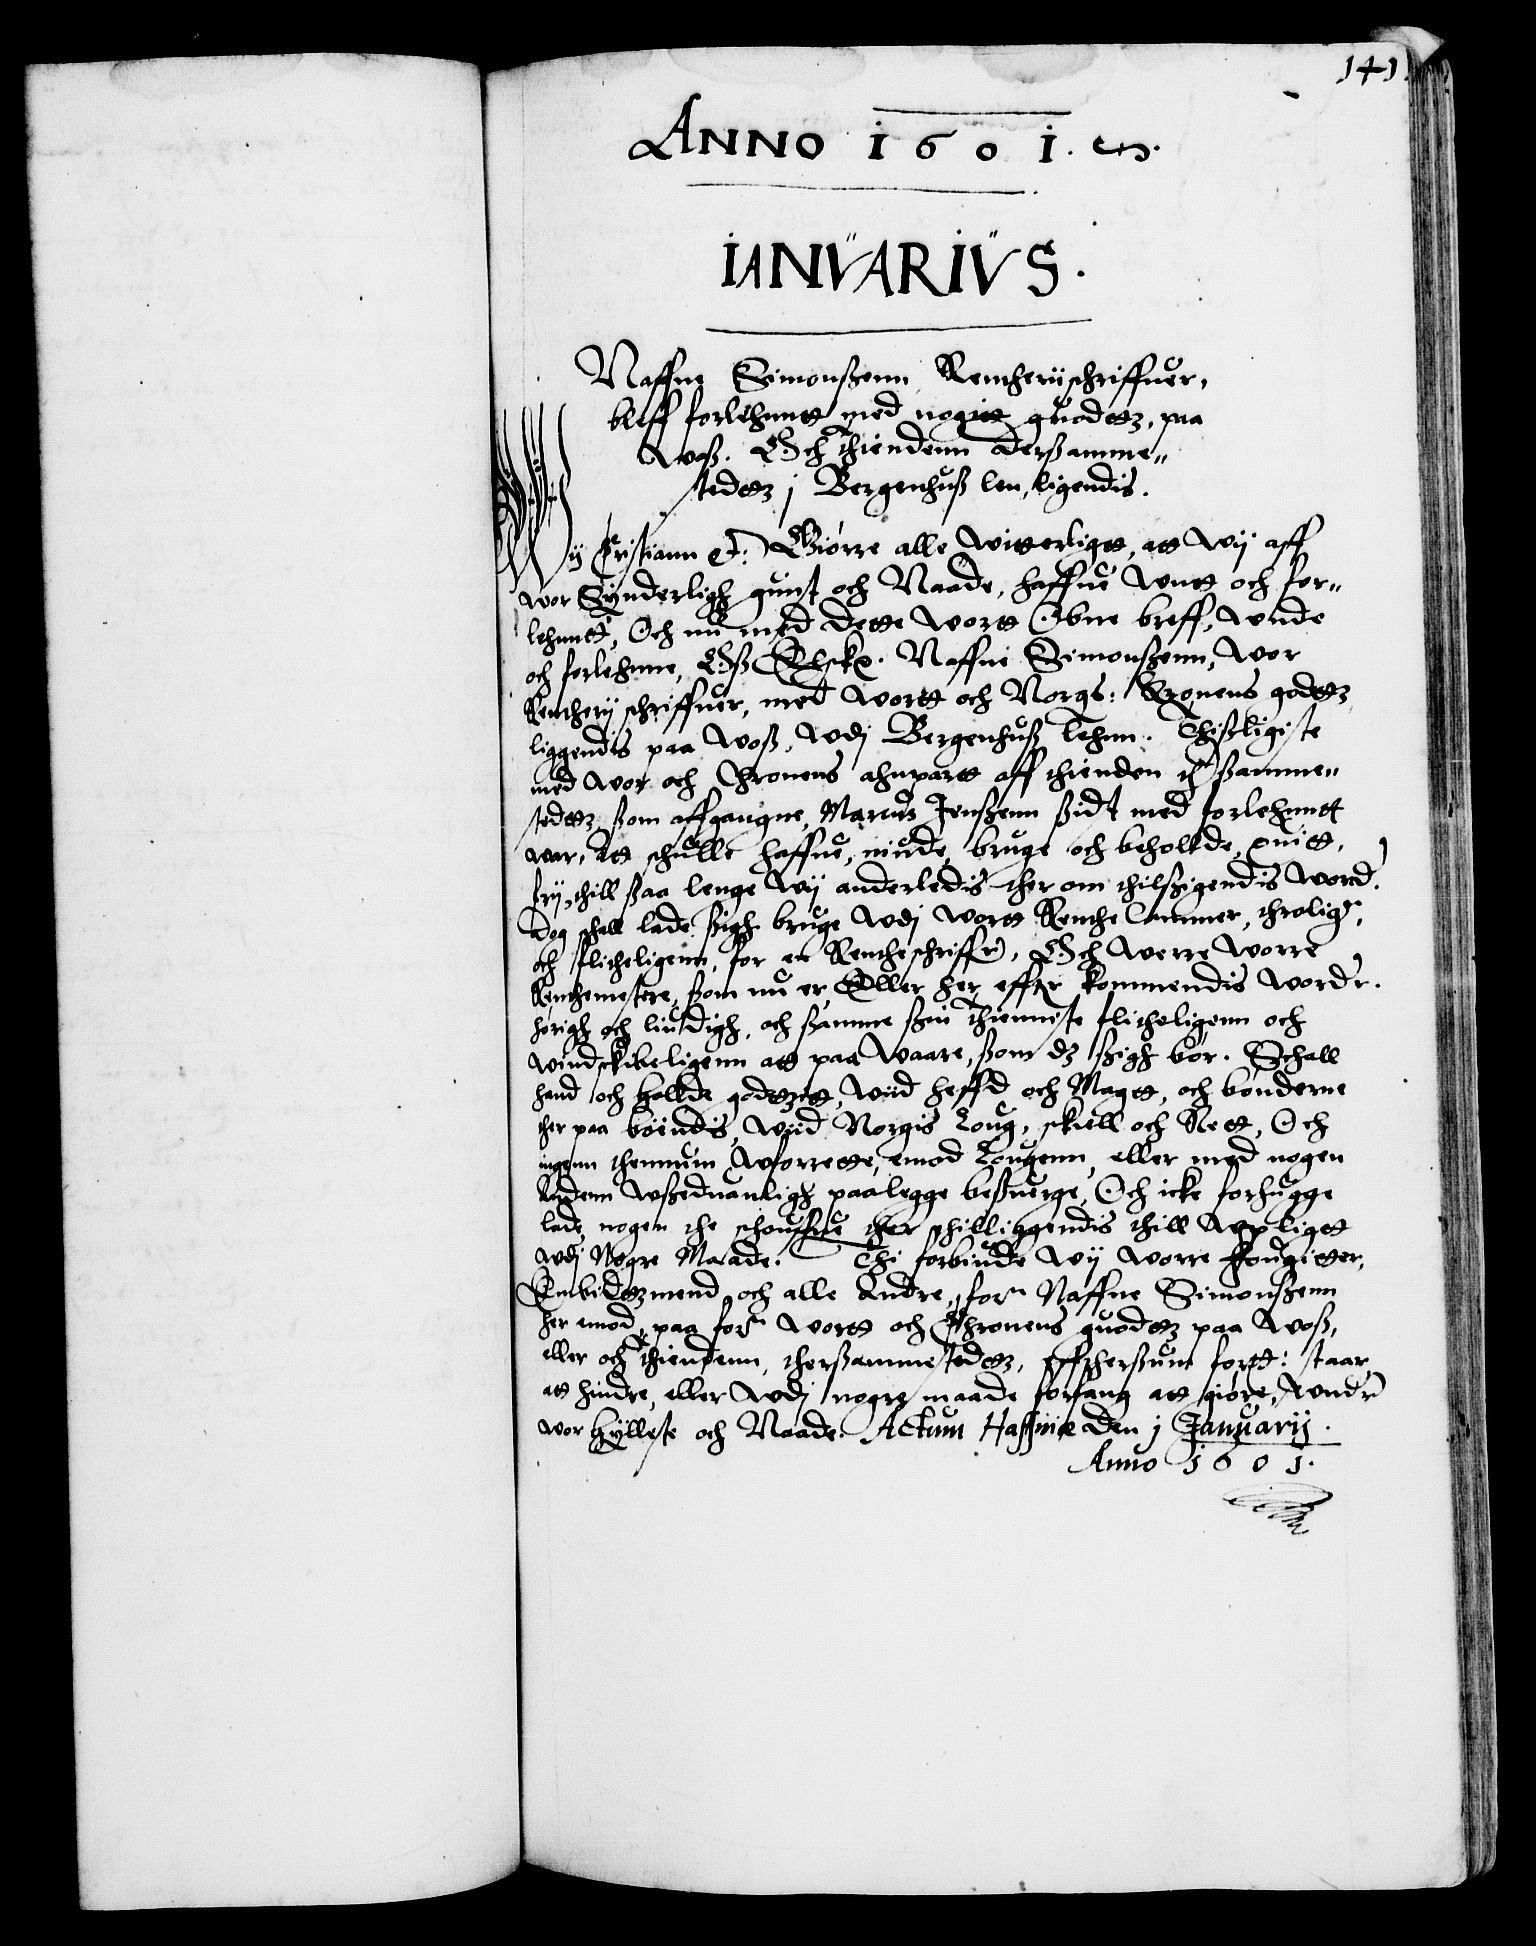 141
ANNO 1601.
IANVARIVS.
Naffne Simonßenn Rentherijschriffuer,
bleff forlehnntt med nogitt guodettz, paa
Woß. Och thiendenn derßamme„
stedettz j Bergenhuß len, ligendis.
Wij Christiann etc: Giørre alle witterligtt, att wij aff
wor Synderligh gunst och Naade, haffue wntt och for„
lehnntt, Och nu med dette wortt Obne breff, wnde
och forlehnne, Oß Elske. Naffne Simonßenn, wor
Rentherij schriffuer, med wortt och Norgs: Cronens godttz
liggendis paa woß, wdj Bergenhuß Lehnn. Thisligiste
med wor och Chronens ahnpartt aff thienden ther ßamme„
stedettz ßom affgangne, Marcus Jenßenn ßidst med forlehnntt
war, Att schulle haffue, niude, bruge och beholde, quitt,
frij, thill ßaa lenge wij anderledis ther om thilßigendis word.
dog schall lade ßigh bruge wdj wortt Renthe Cammer, throlig,
och flitheligenn, for en Rentheschriffr, Och werre worre
Renthemestere, ßom nu er Eller her effter kommendis worder.
hørigh och liudigh, och ßamme ßin Thienniste flitheligenn och
windskibeligenn att paa waare, ßom dz ßigh bør. Schall
hand och holde godttzitt, wiid heffd och Magtt, och bønderne
ther paa boindis, wiid Norgis Loug, skiell och Rett, Och
ingenn thennum wforrette, emod Lougenn, eller med nogen
Anden wßeduanligh paalegge beßuerge, Och icke forhugge
lade nogen the schouffue ther thilliggendis thill wpligtt
wdj Nogre Maade. Thi forbiude wij worre fougitter,
Embidtzmend och alle Andre, for:ne Naffne Simonßenn
her emod, paa for:ne wortt och Chronens guodttz paa woß,
eller och Thiendenn, therßammestedttz, effterßum forst: staar
att hindre, eller wdj nogre maade forfang att giøre, wnder
wor hylleste och Naade. Actum Haffniæ den j Januarij.
Anno 1601.